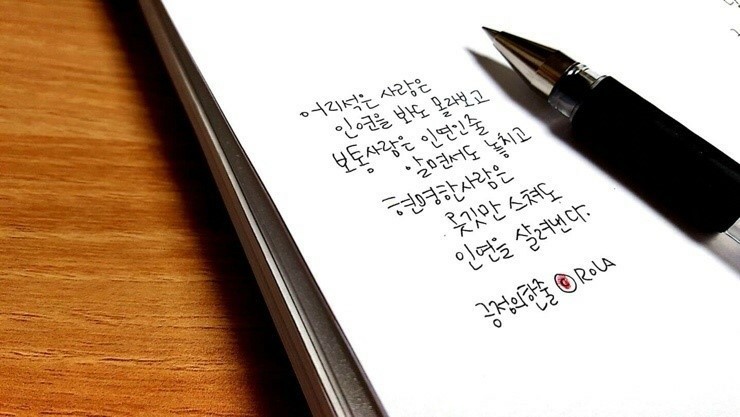 어리석은 사람은
인연을 봐도 몰라보고
보통사람은 인연인줄
알면서도 놓치고
현명한사람은
옷깃만 스쳐도
인연을 살려낸다.
긍정의한줄 ROLA